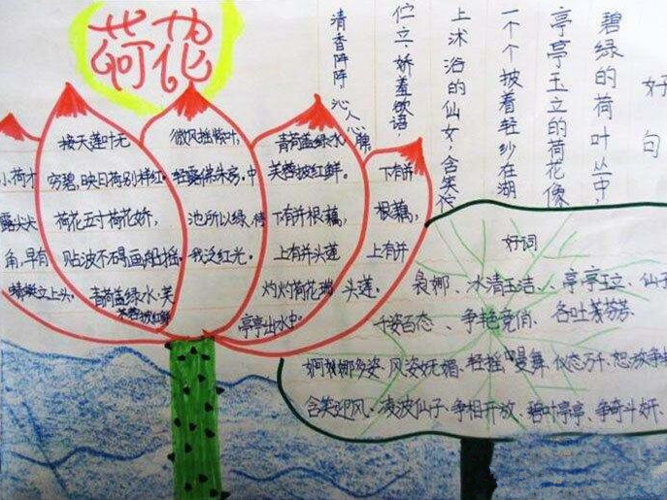 荷花
小荷才
露尖尖
角,早有
蜻蜓立上头。
接天莲叶无
穷碧,映日荷别样红。
荷花五寸荷花娇,
贴波不碍画船摇。
青荷盖绿水,芙
蓉披红鲜
微风摇紫叶,
轻露拂朱房,中
池所以绿,待
我泛红光。
青荷盖绿水
芙蓉披红鲜。
下有并根藕,
上有并头莲
灼灼荷花瑞,
亭亭出水中。
下有并
根藕,
上有并
头莲。
好句
碧绿的荷叶丛中,
亭亭玉立的荷花像
一个个披着轻纱在湖
上沐浴的仙女,含笑伫
伫立,娇羞欲语
清香阵阵 沁人心脾
好词
袅娜、冰清玉洁、、亭亭玉立、仙
千姿百态、争艳竞俏、各吐芬芳、
婀娜多姿、风姿妩媚、轻摇曼舞、仪态万千、怒放争
含笑迎风、凌波仙子、争相开放、碧叶亭亭、争奇斗妍